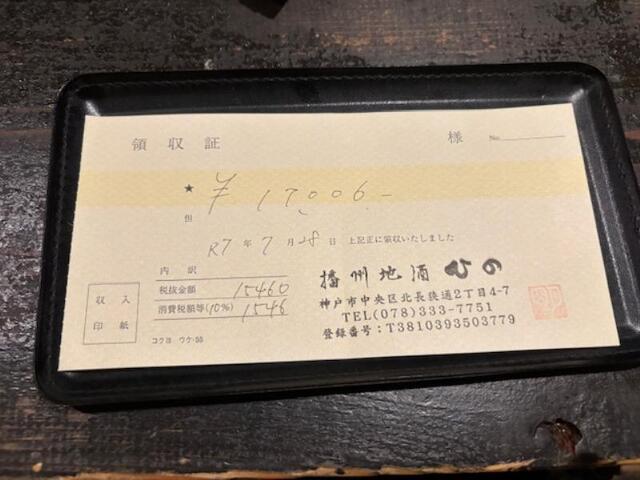 領収証 様 No.
★ ¥17,006.-
但
R7年7月28日 上記正に領収いたしました
内訳
税抜金額 15460
消費税額等(10%) 1546
収入
印紙
コクヨ ウケ-55
播州地酒 ひの
神戸市中央区北長狭通2丁目4-7
TEL(078)333-7751
登録番号:T3810393503779